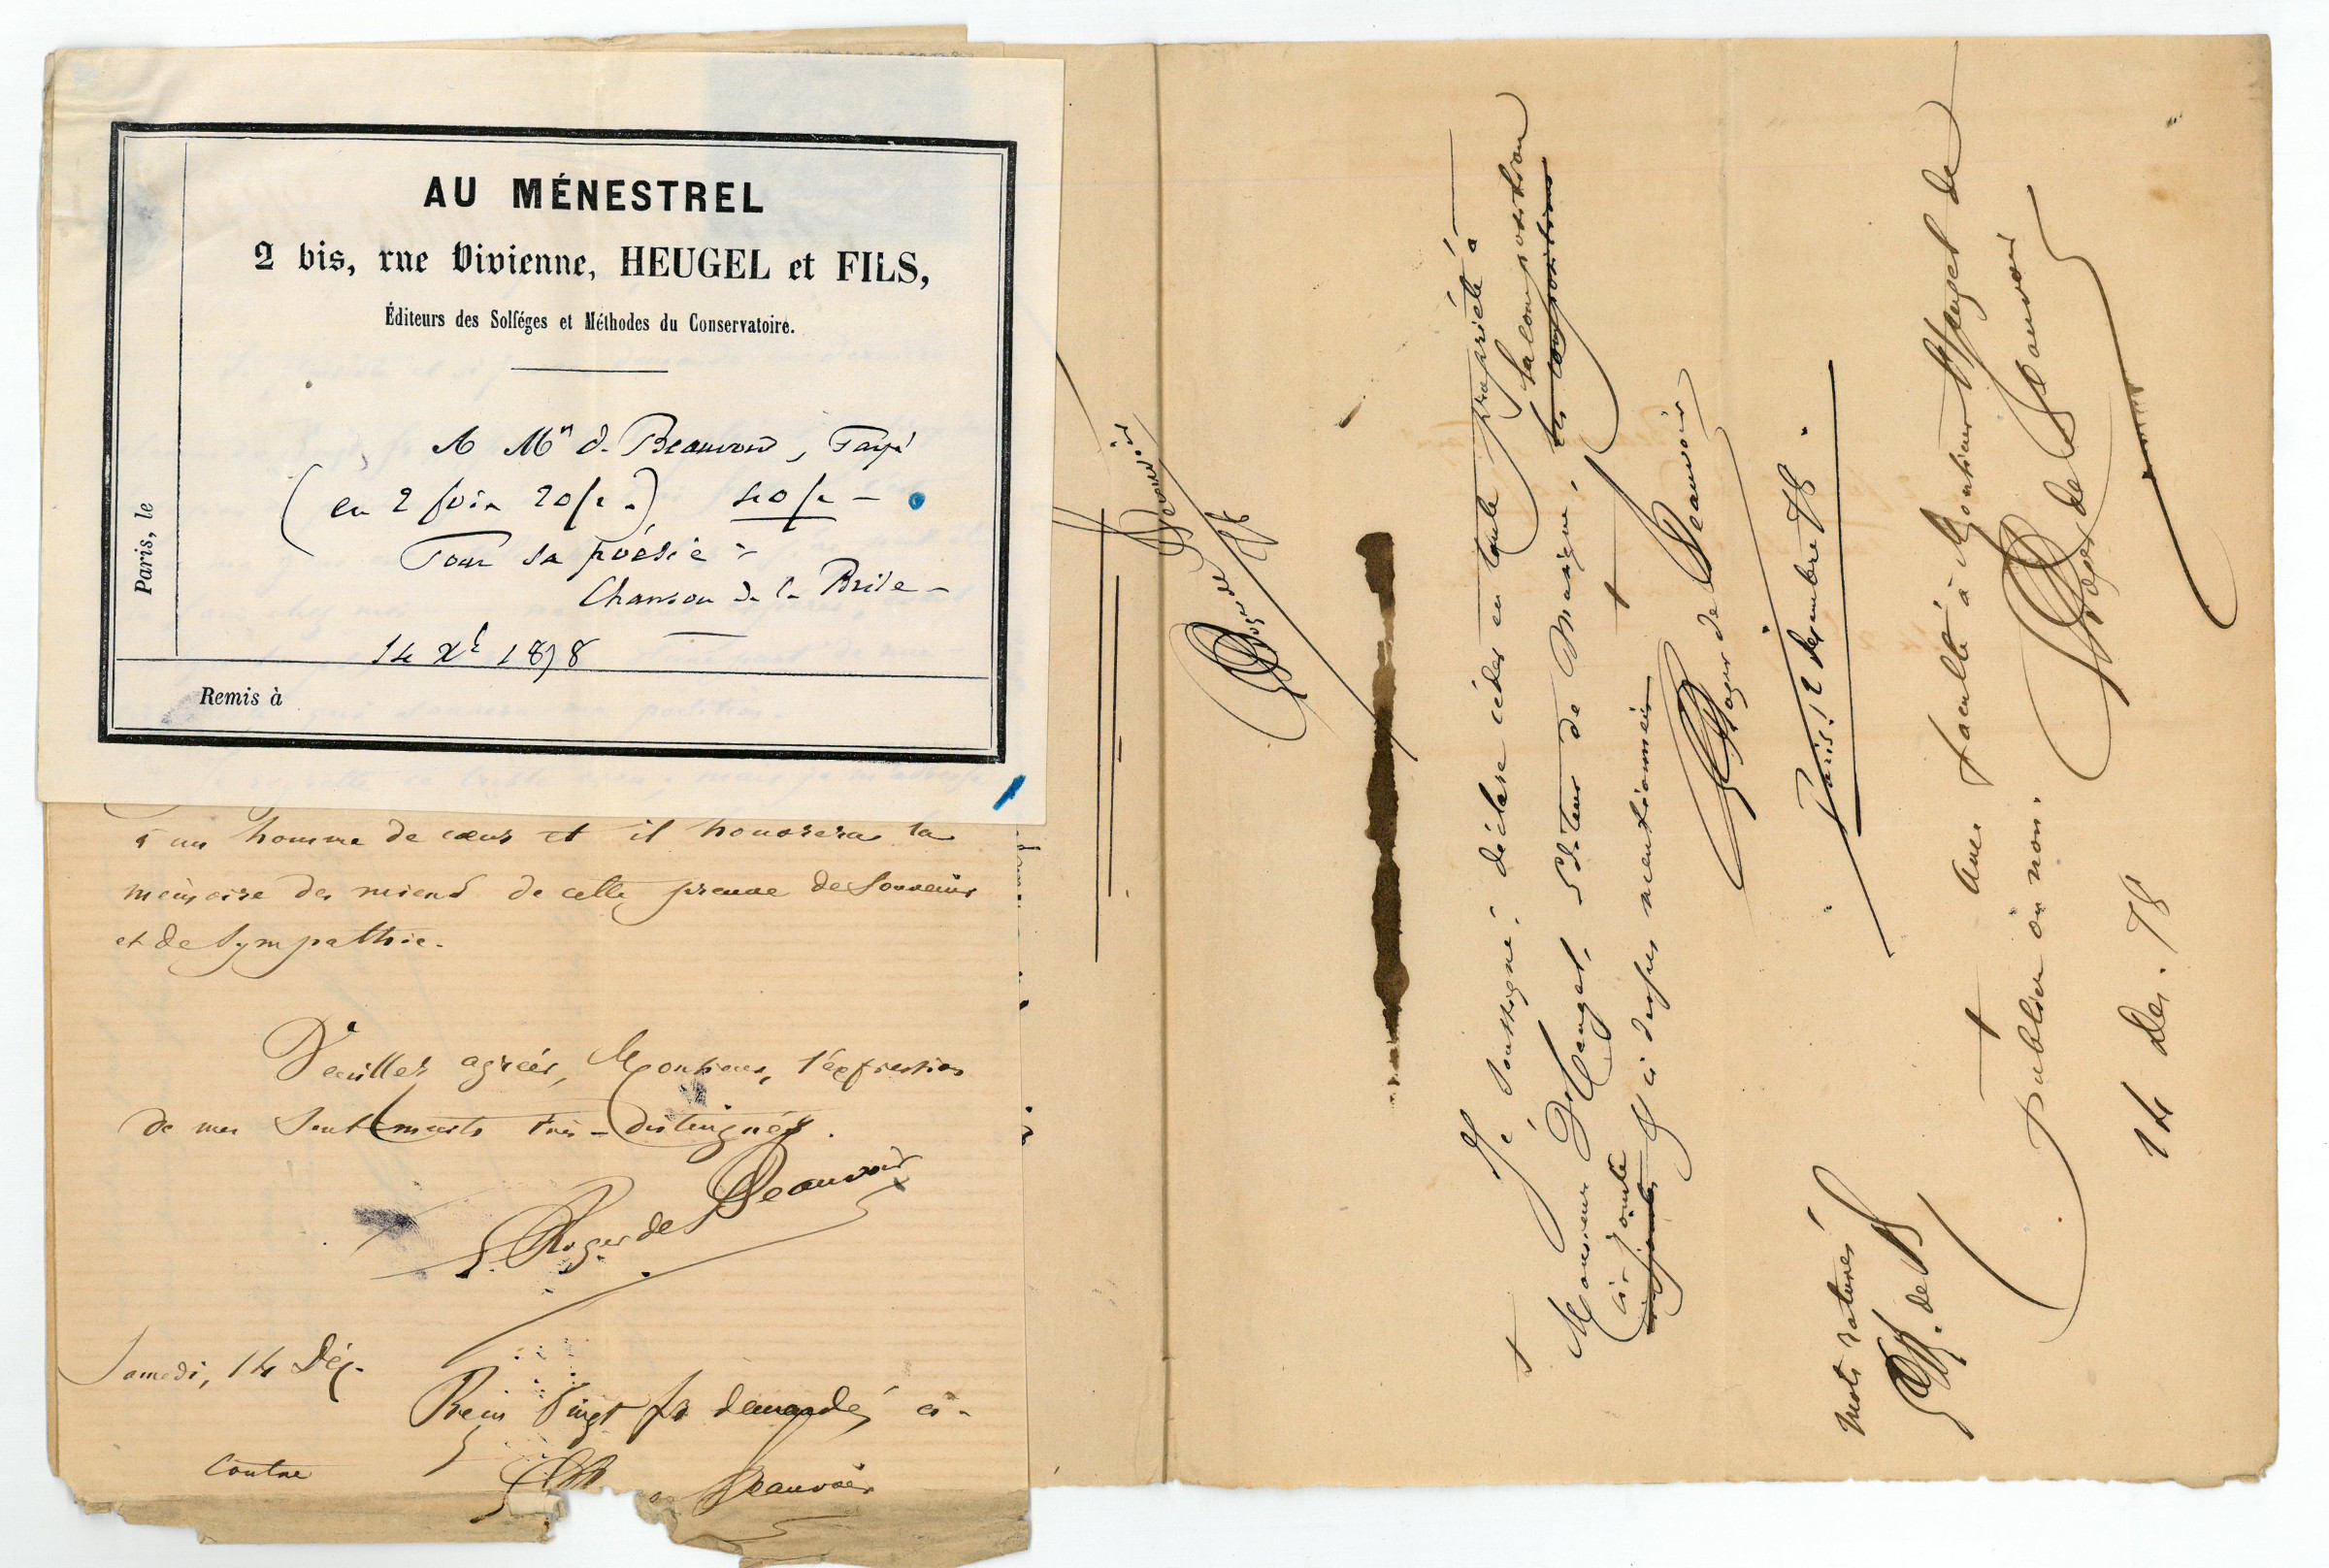 AU MÉNESTREL
2 bis, rue Vivienne, HEUGEL et FILS,
Éditeurs des Solféges et Méthodes du Conservatoire.
Paris, le
A Mr de Beauvoir, Payé
(en 2 fois 20 fr.) 40 fr —
Pour sa poésie :
Chanson de la Brise —
14 Xb 1878
Remis à
à un homme de cœur et il honorera la
mémoire des miens de cette preuve de souvenir
et de sympathie.
Veuillez agréer, Monsieur, l'expression
de mes sentiments très-distingués.
E. Roger de Beauvoir
Samedi, 14 Déc.
Reçu vingt frs demandés ci-
contre
de Beauvoir
Roger de Beauvoir
78
Je soussigné, déclare céder en toute propriété à
Monsieur Heugel, Editeur de Musique, les compositions
la composition
ci-jointes
ci-jointe
et ci dessus mentionnées
Roger de Beauvoir
Paris, 12 décembre 78.
Mots raturés
R. de B
Avec faculté à Monsieur Heugel de
publier ou non.
Roger de Beauvoir
14 Déc. 78